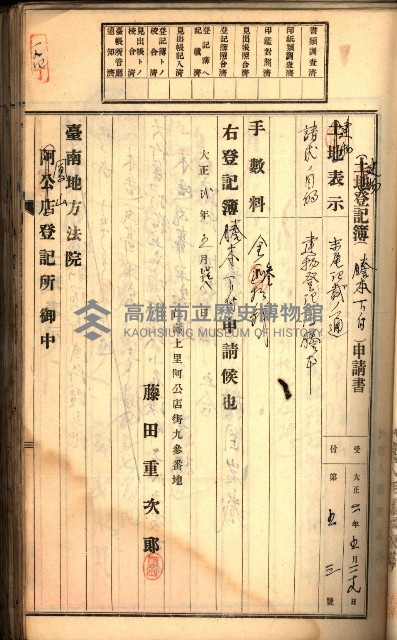 書類調査濟
印紙類調査濟
印鑑對照濟
見出帳照合濟
登記簿照合濟
登記簿ヘ記載濟
見出帳記入濟
登記簿ト校合濟
見出帳ト校合濟
臺帳所管廳通知濟
建物
土地登記簿(謄本下付)申請書
受付
大正二年五月二九日
第五三號
建物
土地表示
請求目的 建物登記謄本
手數料
右登記簿謄本下付申請候也
大正貳年五月
上里阿公店街九參番地
藤田重次郎
臺南地方法院
鳳山
阿公店登記所 御中
高雄市立歷史博物館
KAOHSIUNG MUSEUM OF HISTORY